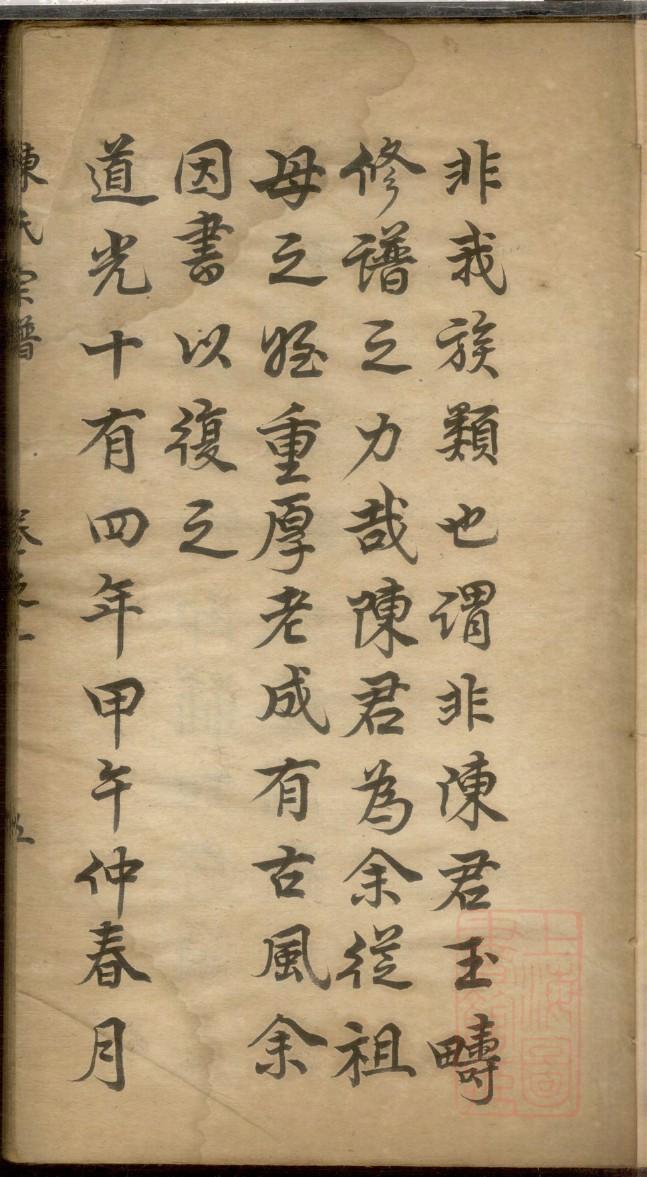 非我族類也謂非陳君玉疇
修譜之力哉陳君為余從祖
母之姪重厚老成有古風余
因書以復之
道光十有四年甲午仲春月
陳氏宗譜 卷之一
上海圖